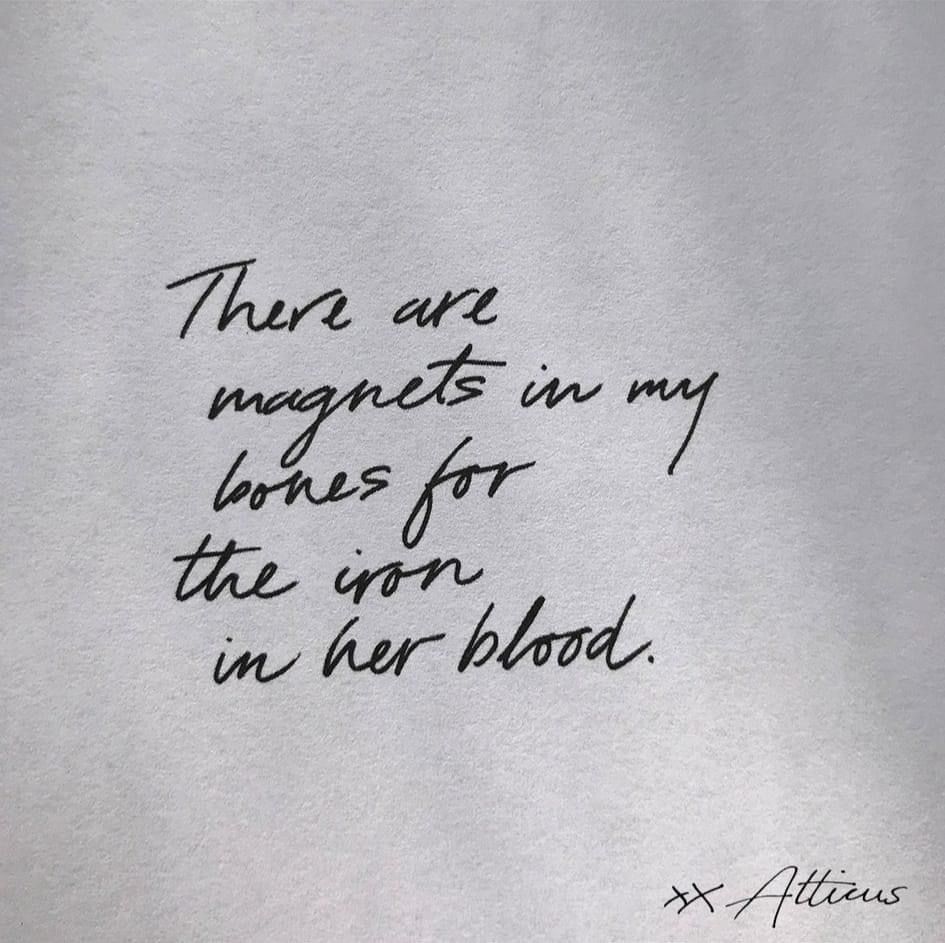 There are
magnets in my
bones for
the iron
in her blood.
xx Atticus